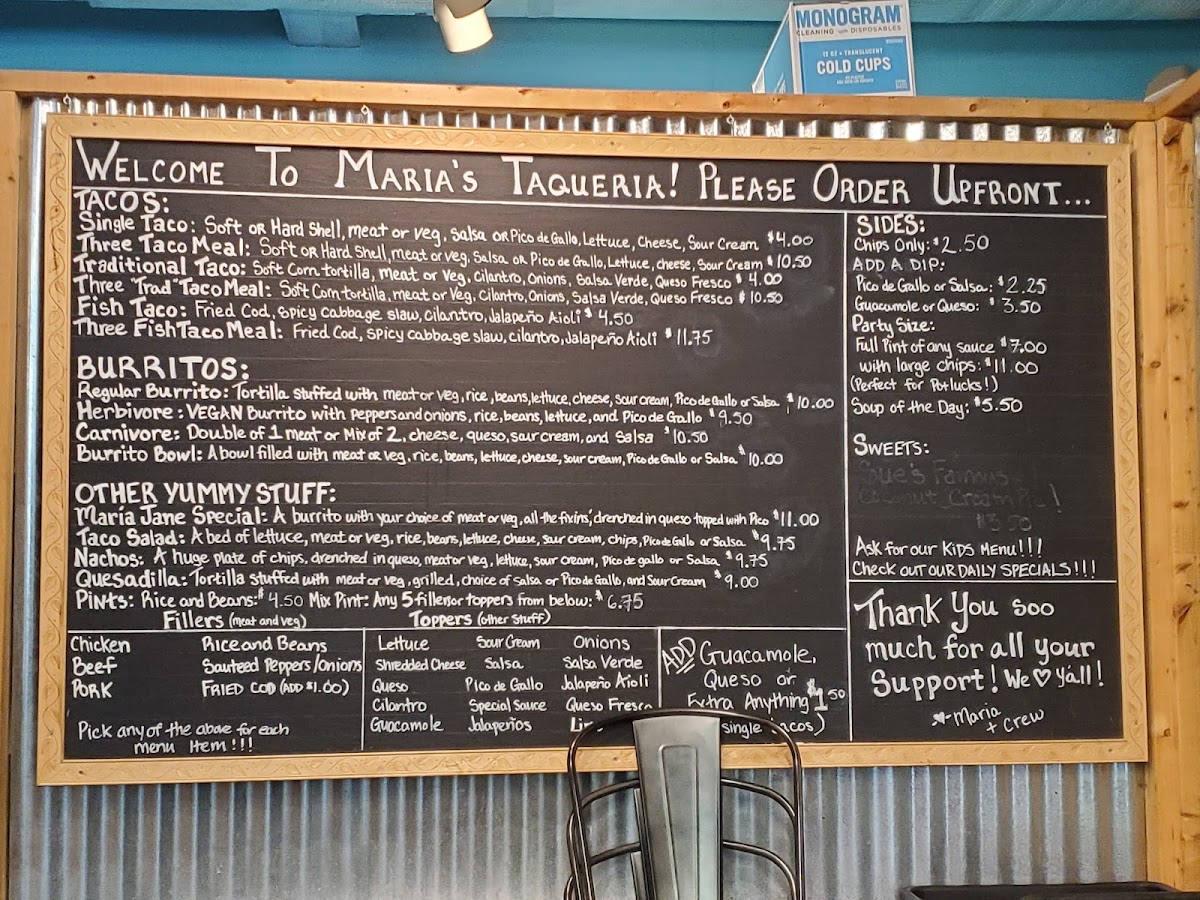 MONOGRAM
CLEANING DISPOSABLES
12 OZ • TRANSLUCENT
COLD CUPS
WELCOME TO MARIA'S TAQUERIA! PLEASE ORDER UPFRONT...
TACOS:
Single Taco: Soft or Hard Shell, meat or veg, Salsa or Pico de Gallo, Lettuce, Cheese, Sour Cream $4.00
Three Taco Meal: Soft or Hard Shell, meat or veg, Salsa or Pico de Gallo, Lettuce, cheese, Sour Cream $10.50
Traditional Taco: Soft Corn tortilla, meat or Veg, Cilantro, Onions, Salsa Verde, Queso Fresco $4.00
Three "Trad" Taco Meal: Soft Corn tortilla, meat or Veg, Cilantro, Onions, Salsa Verde, Queso Fresco $10.50
Fish Taco: Fried Cod, spicy cabbage slaw, cilantro, Jalapeño Aioli $4.50
Three Fish Taco Meal: Fried Cod, spicy cabbage slaw, cilantro, Jalapeño Aioli $11.75
BURRITOS:
Regular Burrito: Tortilla stuffed with meat or veg, rice, beans, lettuce, cheese, sour cream, Pico de Gallo or Salsa $10.00
Herbivore: VEGAN Burrito with peppers and onions, rice, beans, lettuce, and Pico de Gallo $9.50
Carnivore: Double of 1 meat or Mix of 2, cheese, queso, sour cream, and Salsa $10.50
Burrito Bowl: A bowl filled with meat or veg, rice, beans, lettuce, cheese, sour cream, Pico de Gallo or Salsa $10.00
OTHER YUMMY STUFF:
Maria Jane Special: A burrito with your choice of meat or veg, all the fixins', drenched in queso topped with Pico $11.00
Taco Salad: A bed of lettuce, meat or veg, rice, beans, lettuce, cheese, sour cream, chips, Pico de Gallo or Salsa $9.75
Nachos: A huge plate of chips, drenched in queso, meat or veg, lettuce, sour cream, Pico de gallo or Salsa $9.75
Quesadilla: Tortilla stuffed with meat or veg, grilled, choice of salsa or Pico de Gallo, and Sour Cream $9.00
Pints: Rice and Beans: $4.50 Mix Pint: Any 5 filler or toppers from below: $6.75
Fillers (meat and veg) Toppers (other Stuff)
Chicken Rice and Beans
Beef Sauteed Peppers/Onions
Pork FRIED COD (ADD $1.00)
Pick any of the above for each
menu Item!!!
Lettuce Sour Cream Onions
Shredded Cheese Salsa Salsa Verde
Queso Pico de Gallo Jalapeño Aioli
Cilantro Special Sauce Queso Fresco
Guacamole Jalapeños
ADD Guacamole,
Queso or
Extra Anything $1.50
single tacos)
SIDES:
Chips Only: $2.50
ADD A DIP:
Pico de Gallo or Salsa: $2.25
Guacamole or Queso: $3.50
Party Size:
Full Pint of any sauce $7.00
with large chips: $11.00
(Perfect for Potlucks!)
Soup of the Day: $5.50
SWEETS:
Sue's Famous
Coconut Cream Pie!
$3.50
Ask for our Kids Menu!!!
Check out OUR DAILY SPECIALS!!!
Thank You soo
much for all your
Support! We ♡ ya'll!
Maria
+ Crew